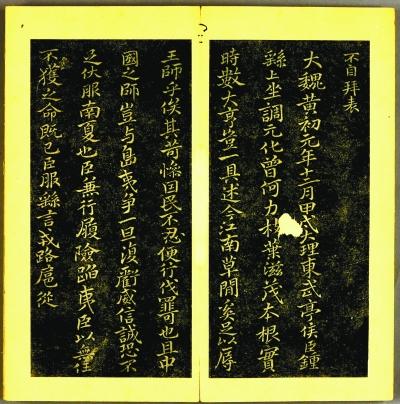 不自拜表
大魏黃初元年十二月甲戌大理東武亭侯臣鍾
繇上坐調元化曾何力枝葉滋茂本根實
時數大亨豈一具述今江南草閒奚足以辱
王師乎俟其苛慘因民不忍便行伐罪可也且中
國之師豈与島夷爭一旦復威信誠恐不
足伏服南夏也臣兼行履險蹈夷臣以無任
不獲之命既已臣服繇言戎路扈從